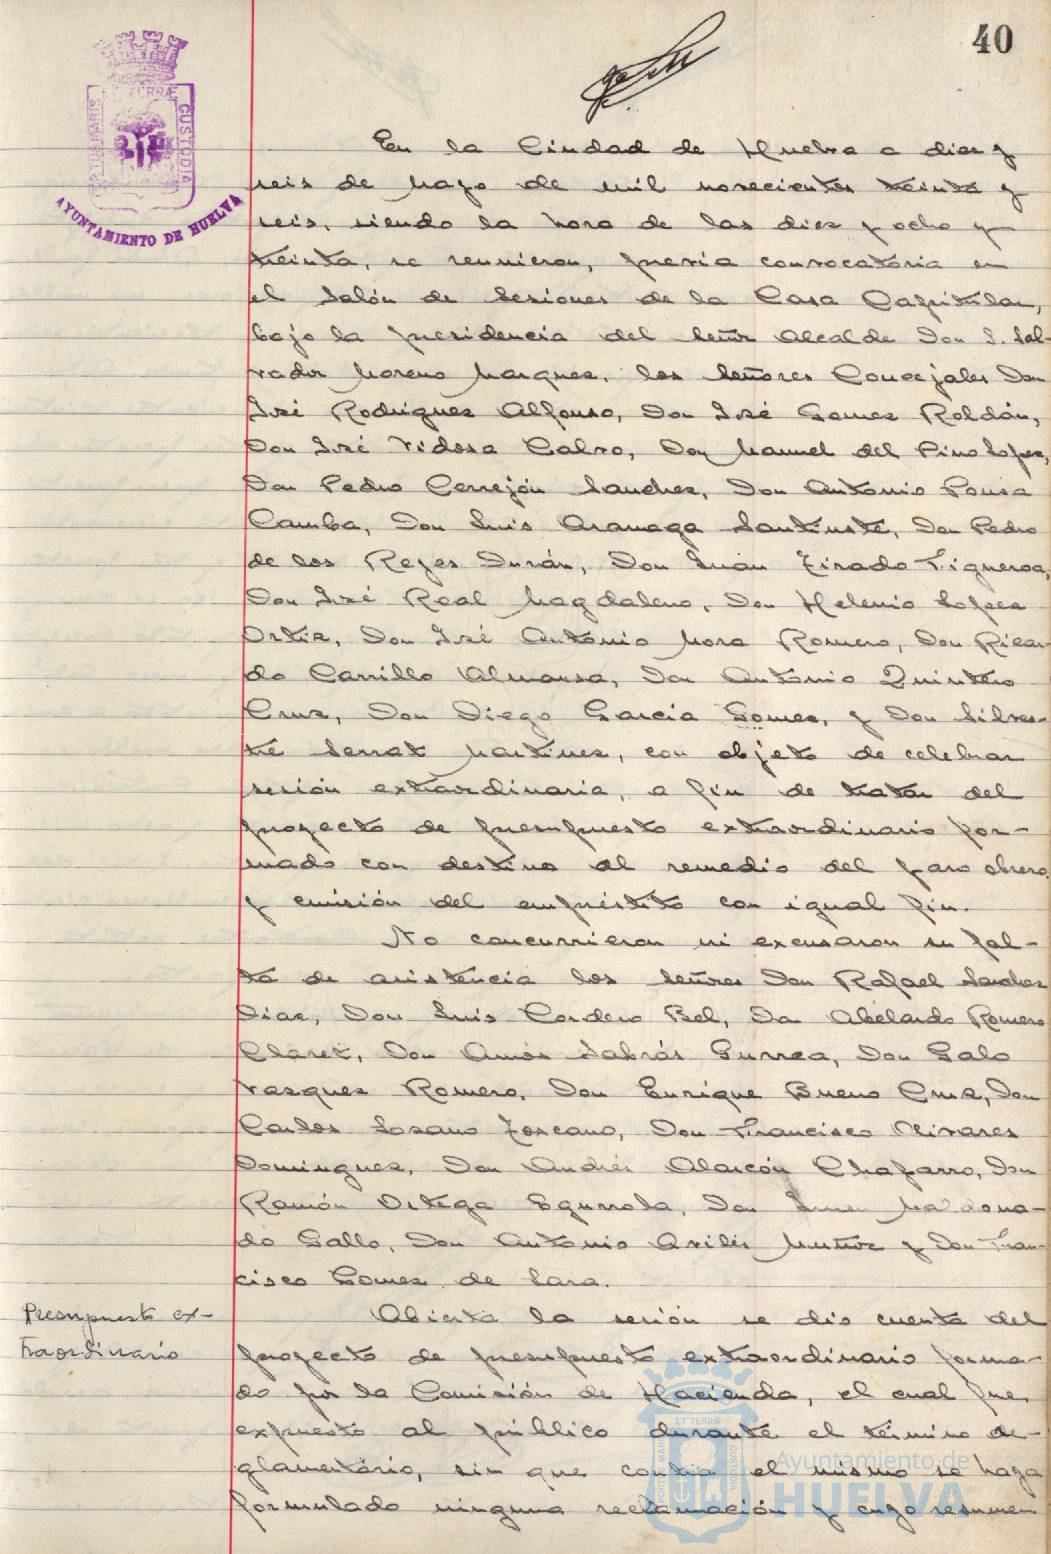 40
PORTUS MARIS ET TERRÆ CUSTODIA
AYUNTAMIENTO DE HUELVA
En la Ciudad de Huelva a diez y
seis de mayo de mil novecientos treinta y
seis, siendo la hora de las diez y ocho y
treinta, se reunieron, previa convocatoria en
el Salón de Sesiones de la Casa Capitular,
bajo la presidencia del Señor Alcalde Don J. Sal-
vador Moreno Marquez, los Señores Concejales Don
José Rodriguez Alfonso, Don José Gomez Roldán,
Don José Vidosa Calvo, Don Manuel del Pino Lopez,
Don Pedro Cerrejón Sanchez, Don Antonio Pousa
Camba, Don Luis Aranaga Santiuste, Don Pedro
de los Reyes Durán, Don Juan Tirado Figueroa,
Don José Real Magdaleno, Don Helenio Lopez
Ortiz, Don José Antonio Mora Romero, Don Ricar-
do Carrillo Almansa, Don Antonio Quintero
Cruz, Don Diego Garcia Gomez, y Don Silves-
tre Serrat Martinez, con objeto de celebrar
sesión extraordinaria, a fin de tratar del
proyecto de presupuesto extraordinario for-
mado con destino al remedio del paro obrero
y emisión del empréstito con igual fin.
No concurrieron ni excusaron su fal-
ta de asistencia los señores Don Rafael Sanchez
Diaz, Don Luis Cordero Bel, Don Abelardo Romero
Claret, Don Amós Sabrás Gurrea, Don Galo
Vazquez Romero, Don Enrique Bueno Cruz, Don
Carlos Lozano Toscano, Don Francisco Olivares
Dominguez, Don Andrés Alarcón Chaparro, Don
Ramón Ortega Egurrola, Don Maldona-
do Gallo, Don Antonio Avilés Muñoz y Don Fran-
cisco Gomez de Lara.
Presupuesto ex-
traordinario
Abierta la sesión se dió cuenta del
proyecto de presupuesto extraordinario forma-
do por la Comisión de Hacienda, el cual fue
expuesto al público durante el término re-
glamentário, sin que contra el mismo se haya
formulado ninguna reclamación y cuyo resumen
Ayuntamiento de
HUELVA